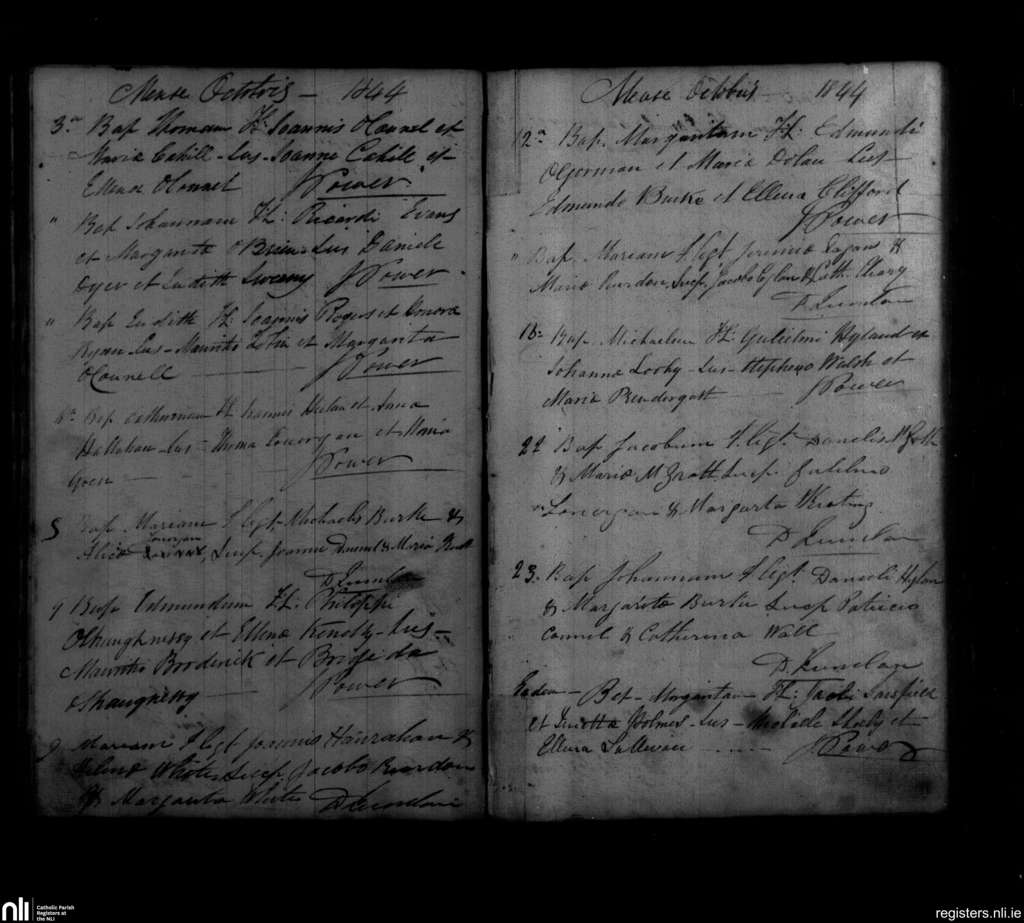 Mense Octobris - 1844
3a Bap Thomam Fl: Joannis OConnel et
Maria Cahill - Sus - Joanne Cahill et
Ellena OConnel JPower
" Bap Johannam Fl: Ricardi Evans
et Margarita OBrien - Sus Daniele
Dyer et Judith Sweeny JPower
" Bap Judith Fl: Joannis Rogers et Honora
Ryan Sus - Mauritio Tobin et Margarita
OConnell JPower
Bap Catherinam Fl Joannis et Anna
Hallahan - Sus - Thoma Lonergan et Maria
JPower
5 Bap Mariam F legt Michaelis Burke &
Lonergan
Alicia Susp Joanne Daniel & Maria
D Quinlan
9 Bap Edmundum Fl: Philippi
OShaughnessy et Ellena Kenelly - Sus -
Mauritio Broderick et Brigida
OShaugnessy JPower
9 Mariam F legt Joannis Hanrahan &
Helena White Susp Jacobo Reardon
& Margarita White D Quinlan
Mense Octobris 1844
12a Bap. Margaritam Fl: Edmundi
OGorman et Maria Dolan Sus
Edmundo Burke et Ellena Clifford
JPower
" Bap. Mariam F legt Jeremia Fagan &
Maria Reardon, Susp, Jacobo & Cath. Cleary
D Quinlan
18: Bap Michaelem Fl: Gulielmi Hyland et
Johanna Looby - Sus - Stephano Walsh et
Maria Prendergast JPower
22 Bap Jacobum F. legt Danielis McGrath
& Maria McGrath Susp Gulielmo
Lonergan & Margarta Keating
D Quinlan
23. Bap Johannam F legt. Danieli Hylan
& Margarita Burke Susp Patricio
Connel & Catherina Wall
D Quinlan
Eadem - Bap - Margaritam Fl: Jacobi Sarsfield
et Juliotta Holmes - Sus - Sheehy et
Ellena Sullivan JPower
nli
Catholic Parish
Registers at
the NLI
registers.nli.ie